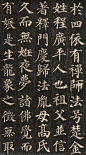 於四依有禪師法号楚金
姓程廣平人也祖父並信
著釋門慶歸法胤母高氏
久而無妊夜夢諸佛覺而
有娠是生龍象之徵